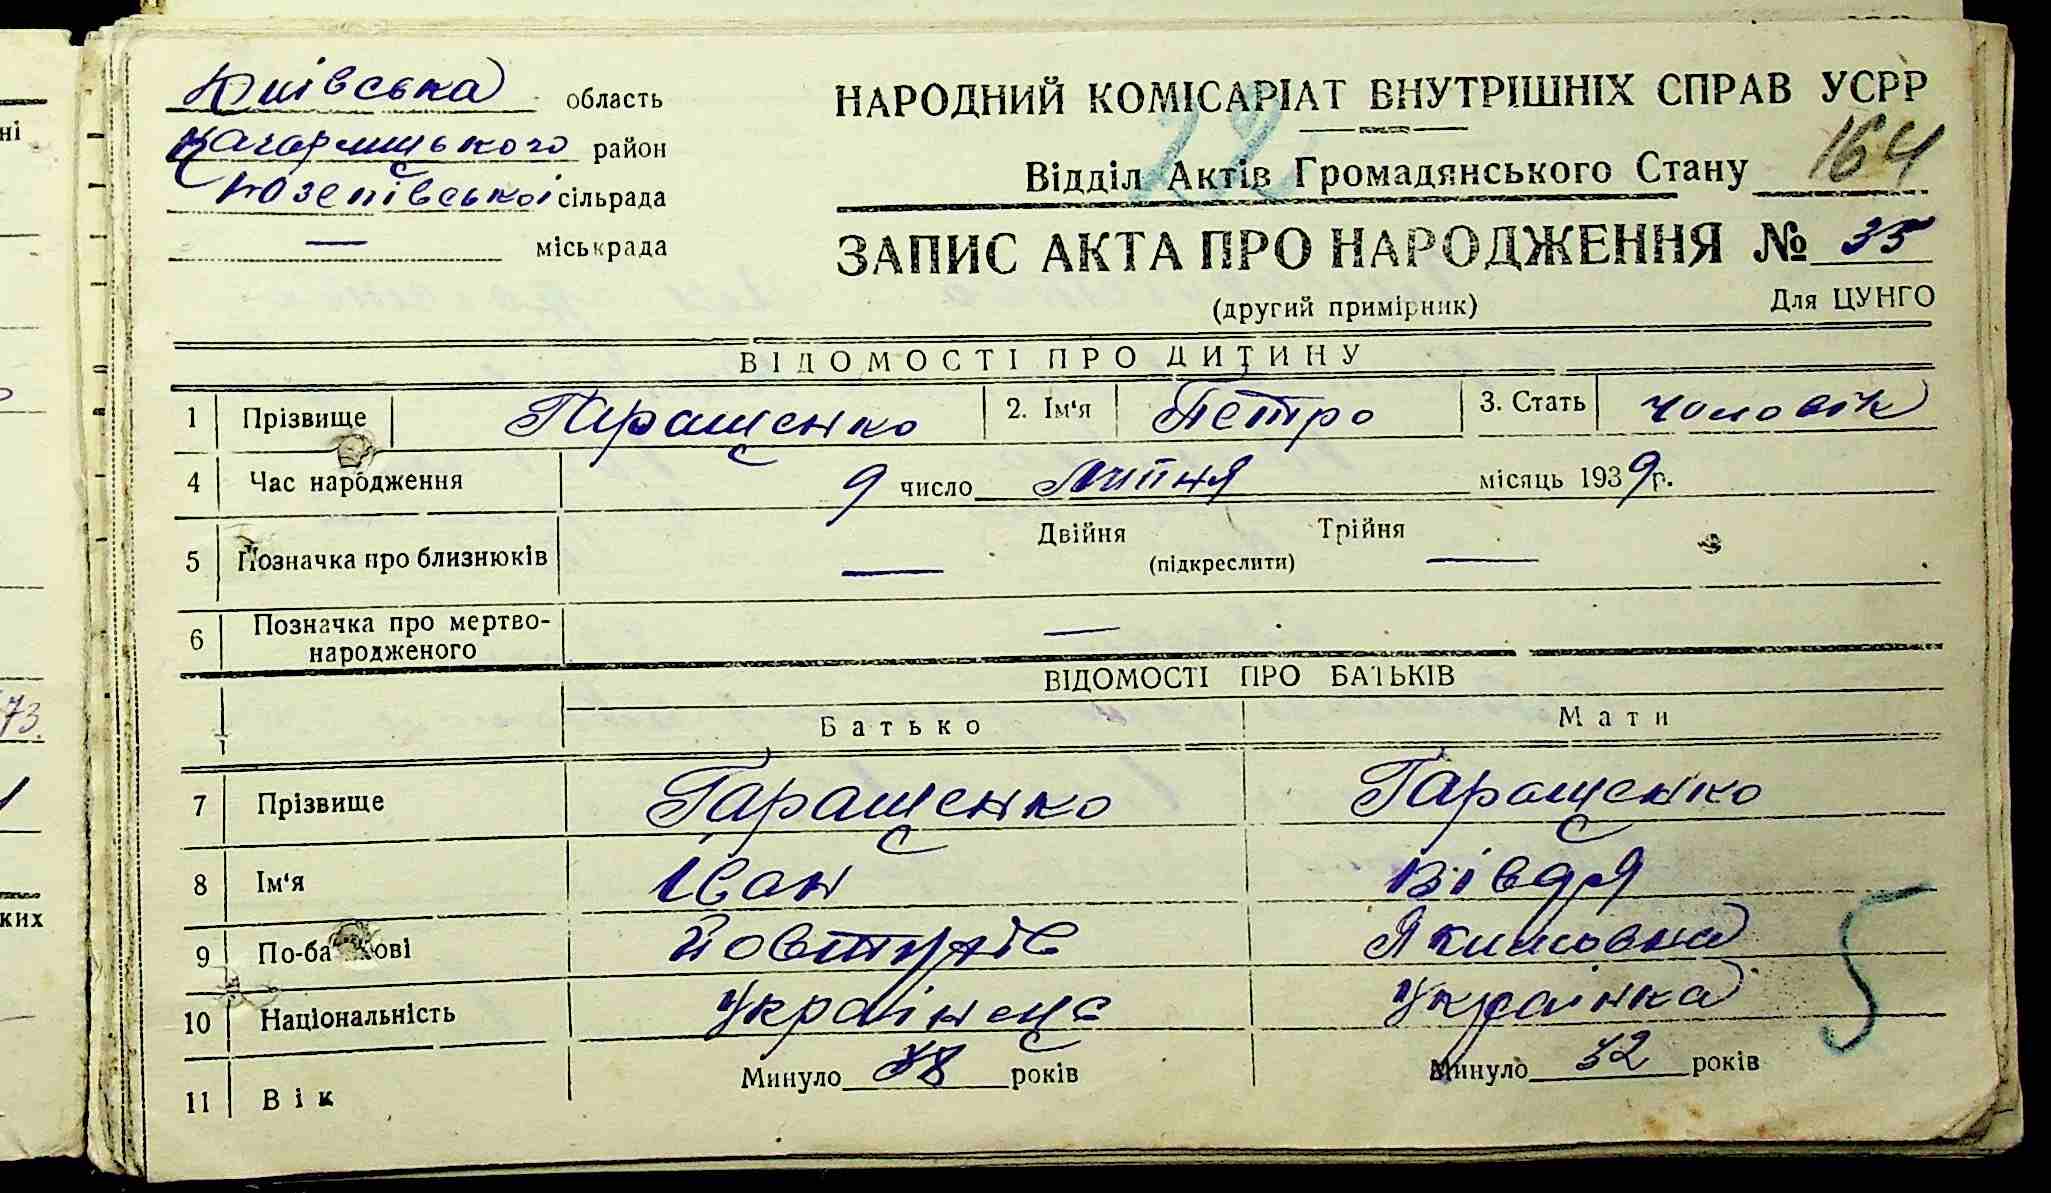 Київська область
Кагарлицького район
Юзепівської сільрада
— міськрада
НАРОДНИЙ КОМІСАРІАТ ВНУТРІШНІХ СПРАВ УСРР
22
Відділ Актів Громадянського Стану 164
ЗАПИС АКТА ПРО НАРОДЖЕННЯ № 35
(другий примірник) Для ЦУНГО
ВІДОМОСТІ ПРО ДИТИНУ
1 Прізвище Гаращенко 2. Ім'я Петро 3. Стать чоловік
4 Час народження 9 число Липня місяць 1939 р.
5 Позначка про близнюків Двійня — Трійня —
(підкреслити)
6 Позначка про мертво-
народженого —
ВІДОМОСТІ ПРО БАТЬКІВ
Батько Мати
7 Прізвище Гаращенко Гаращенко
8 Ім'я Іван Вівдя
9 По-батькові Якимовна
10 Національність Українец Українка
5
11 Вік Минуло 38 років Минуло 32 років
ні
73.
ких